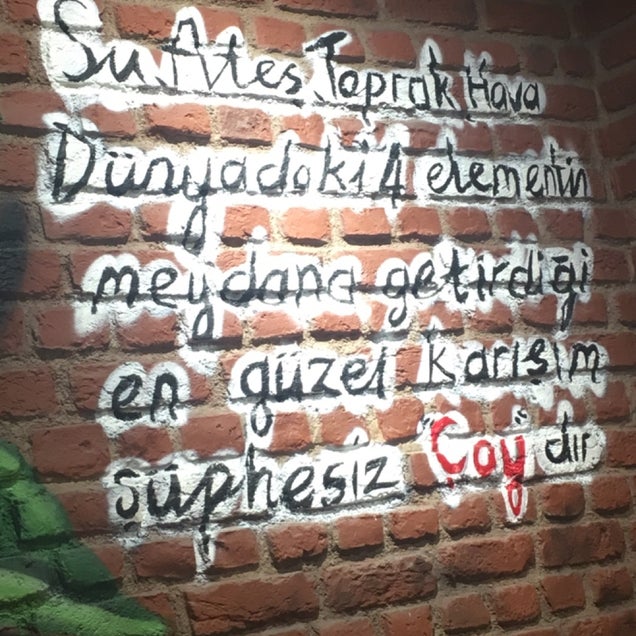 Su Ateş Toprak Hava
Dünyadaki 4 elementin
meydana getirdiği
en güzel karışım
şüphesiz "Çay" dır